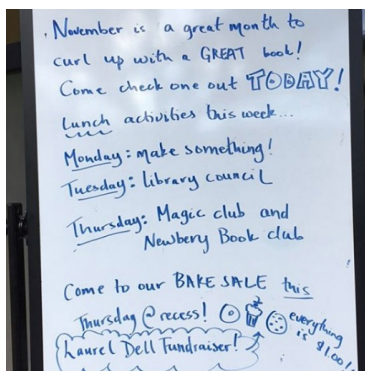 November is a great month to
curl up with a GREAT book!
Come check one out TODAY!
Lunch activities this week...
Monday: make something!
Tuesday: library council
Thursday: Magic club and
Newbery Book club
Come to our BAKE SALE this
Thursday @ recess!
everything
is $1.00!
Laurel Dell Fundraiser!